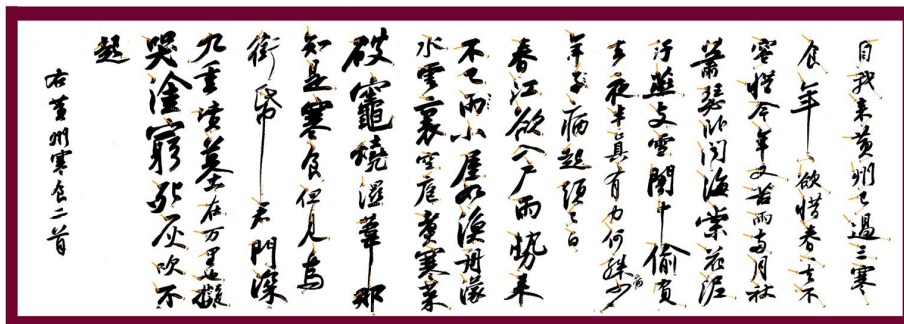 自我来黄州已過三寒
食年〻欲惜春〻去不
容惜今年又苦雨兩月秋
蕭瑟卧聞海棠花泥
汙燕支雪闇中偷負
去夜半真有力何殊病少
年子病起須已白
春江欲入戶雨勢来
不已雨小屋如漁舟濛〻
水雲裏空庖煑寒菜
破竈燒濕葦那
知是寒食但見烏
銜帋君門深
九重墳墓在万里也擬
哭塗窮死灰吹不
起
右黄州寒食二首